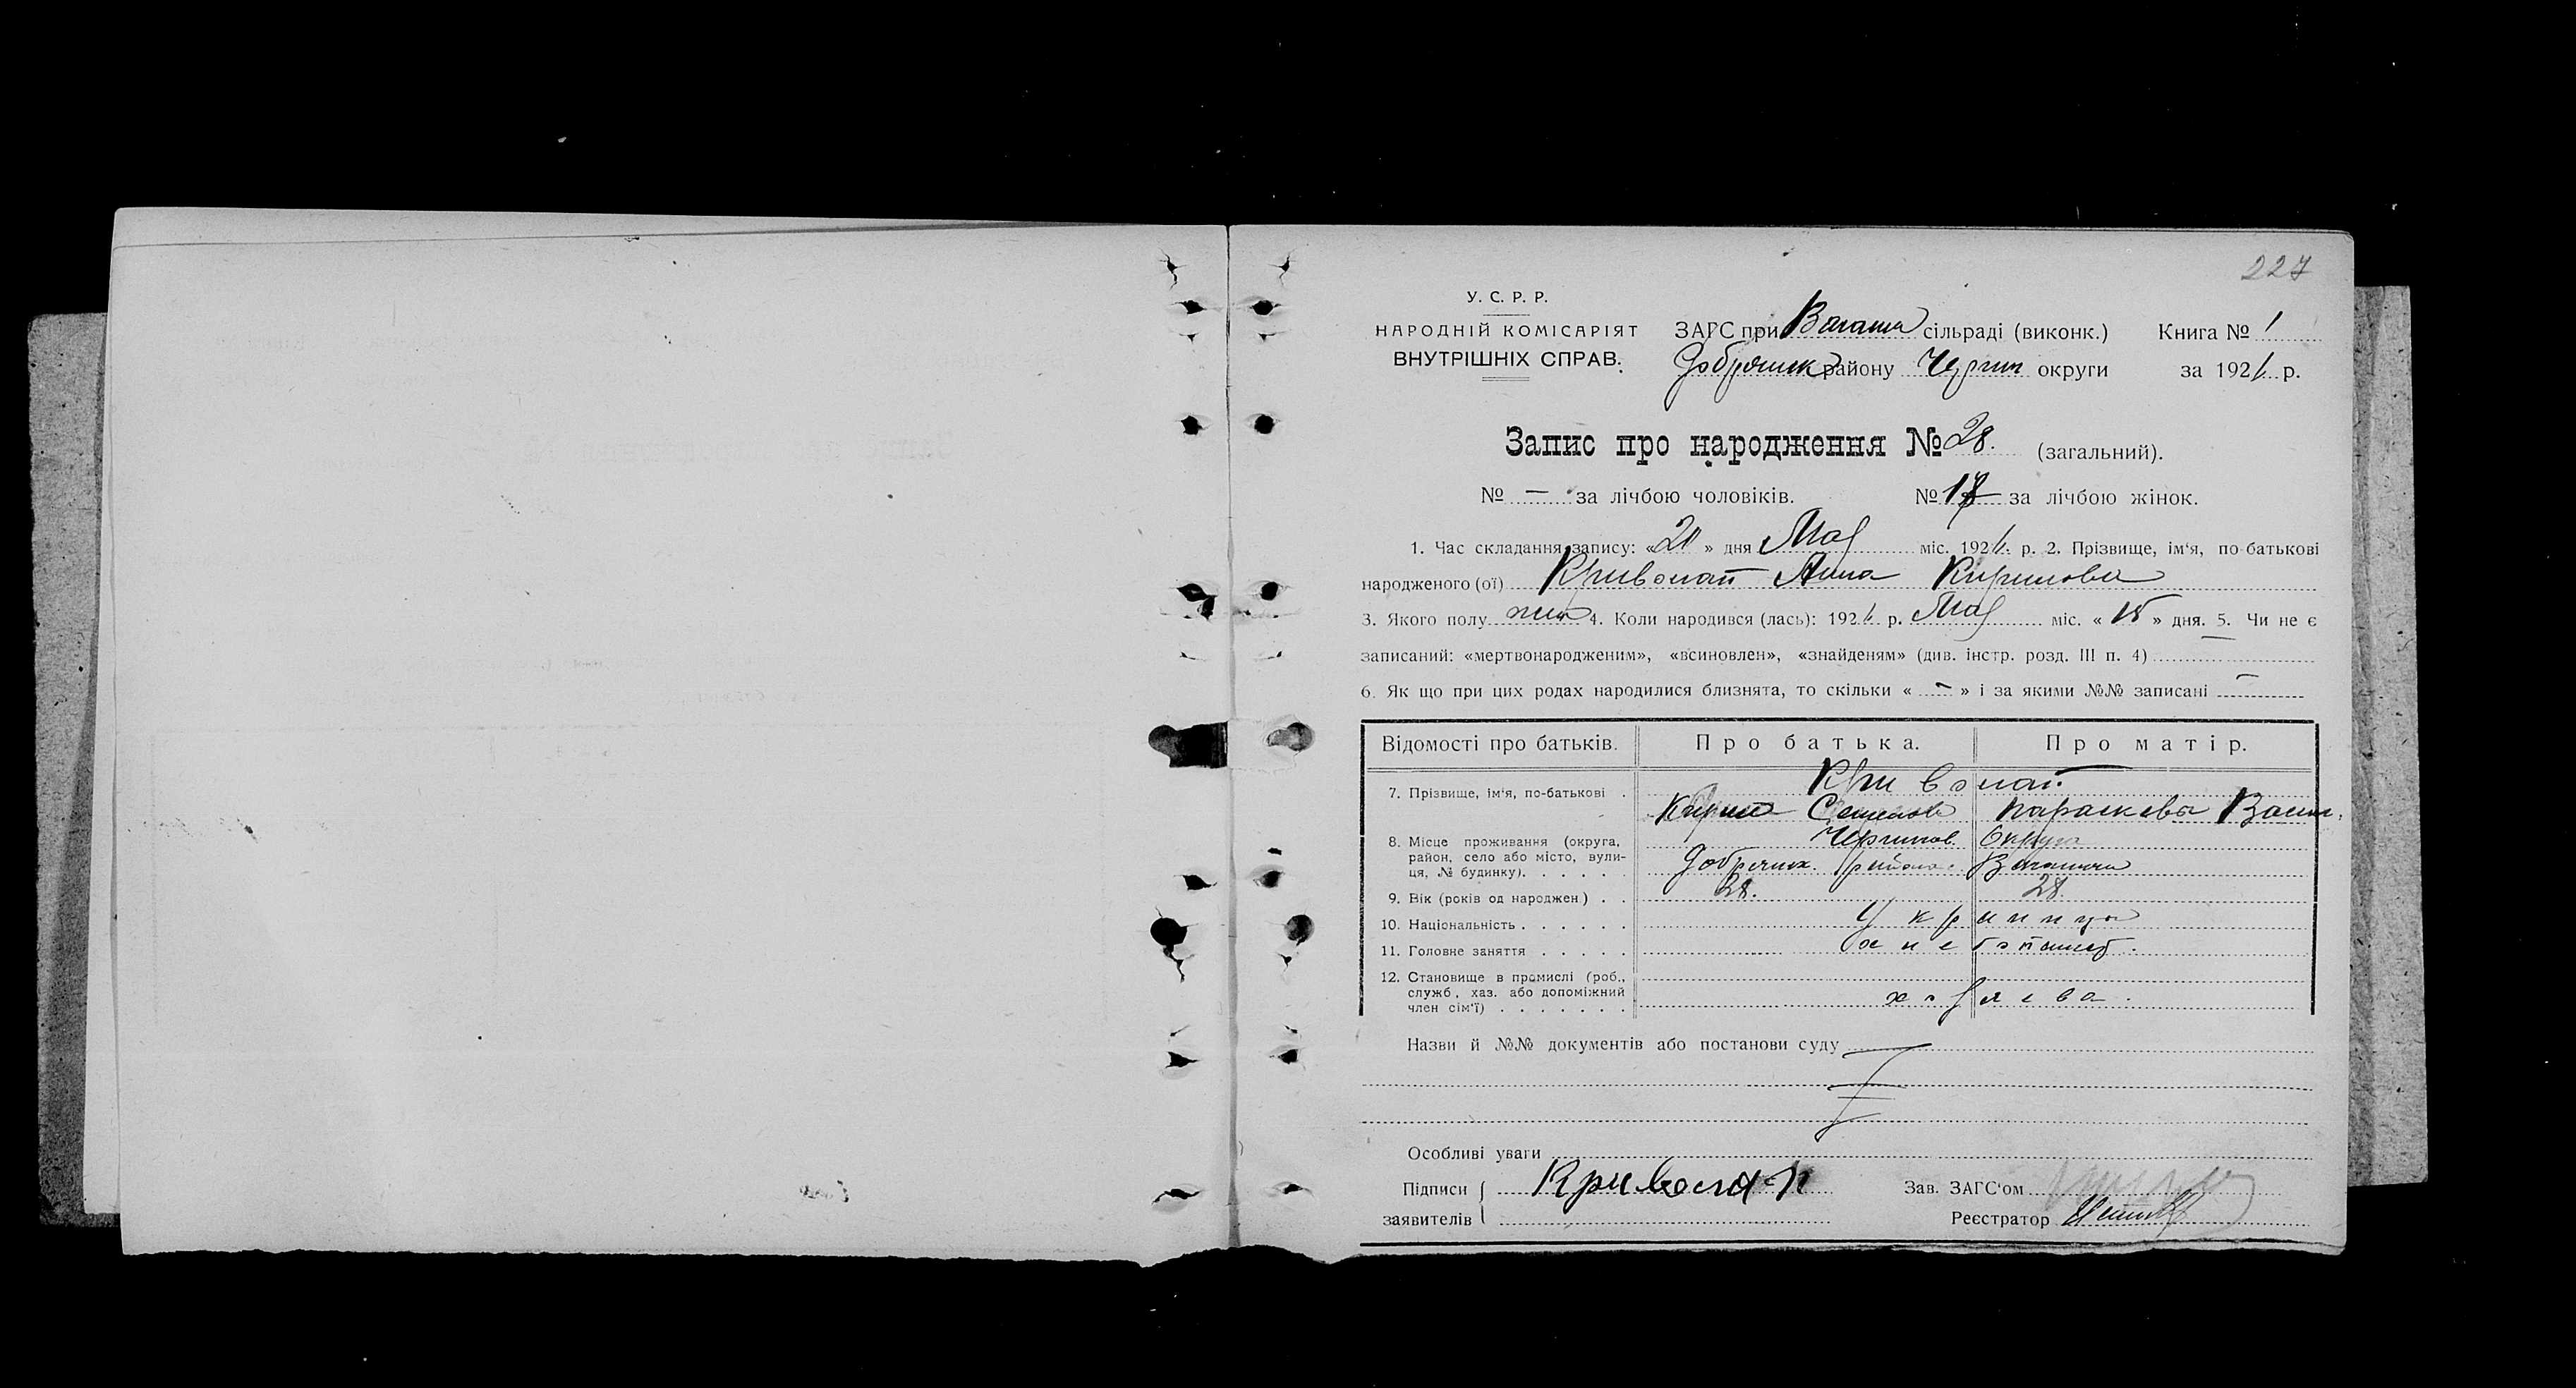 227
У. С. Р. Р.
НАРОДНІЙ КОМІСАРІЯТ
ВНУТРІШНІХ СПРАВ.
ЗАГС при сільраді (виконк.) Книга № 1
району Черниг округи за 192 р.
Запис про народження № 28. (загальний).
№ — за лічбою чоловіків. № 17 за лічбою жінок.
1. Час складання запису: « » дня Мая міс. 192 р. 2. Прізвище, ім'я, по-батькові
народженого (ої) Криволап Анна Кирилова
3. Якого полу жін 4. Коли народився (лась): 192 р. Мая міс. « » дня. 5. Чи не є
записаний: «мертвонародженим», «всиновлен», «знайденям» (див. інстр. розд. III п. 4) —
6. Як що при цих родах народилися близнята, то скільки « — » і за якими №№ записані —
Відомості про батьків. Про батька. Про матір.
7. Прізвище, ім'я, по-батькові . Криволап.
Кирил Семенов Параскева Васил.
8. Місце проживання (округа, район, село або місто, вулиця, № будинку). . . . . . Чернигов. Округа
Добрянск. района.
9. Вік (років од народжен) . . 28. 28.
10. Національність . . . . . . Украинцы
11. Головне заняття . . . . . хлебопашеф.
12. Становище в промислі (роб., служб, хаз. або допоміжний член сім'ї) . . . . . . . хозяева.
Назви й №№ документів або постанови суду
Особливі уваги
Підписи заявителів { Криволап
Зав. ЗАГС'ом
Реєстратор